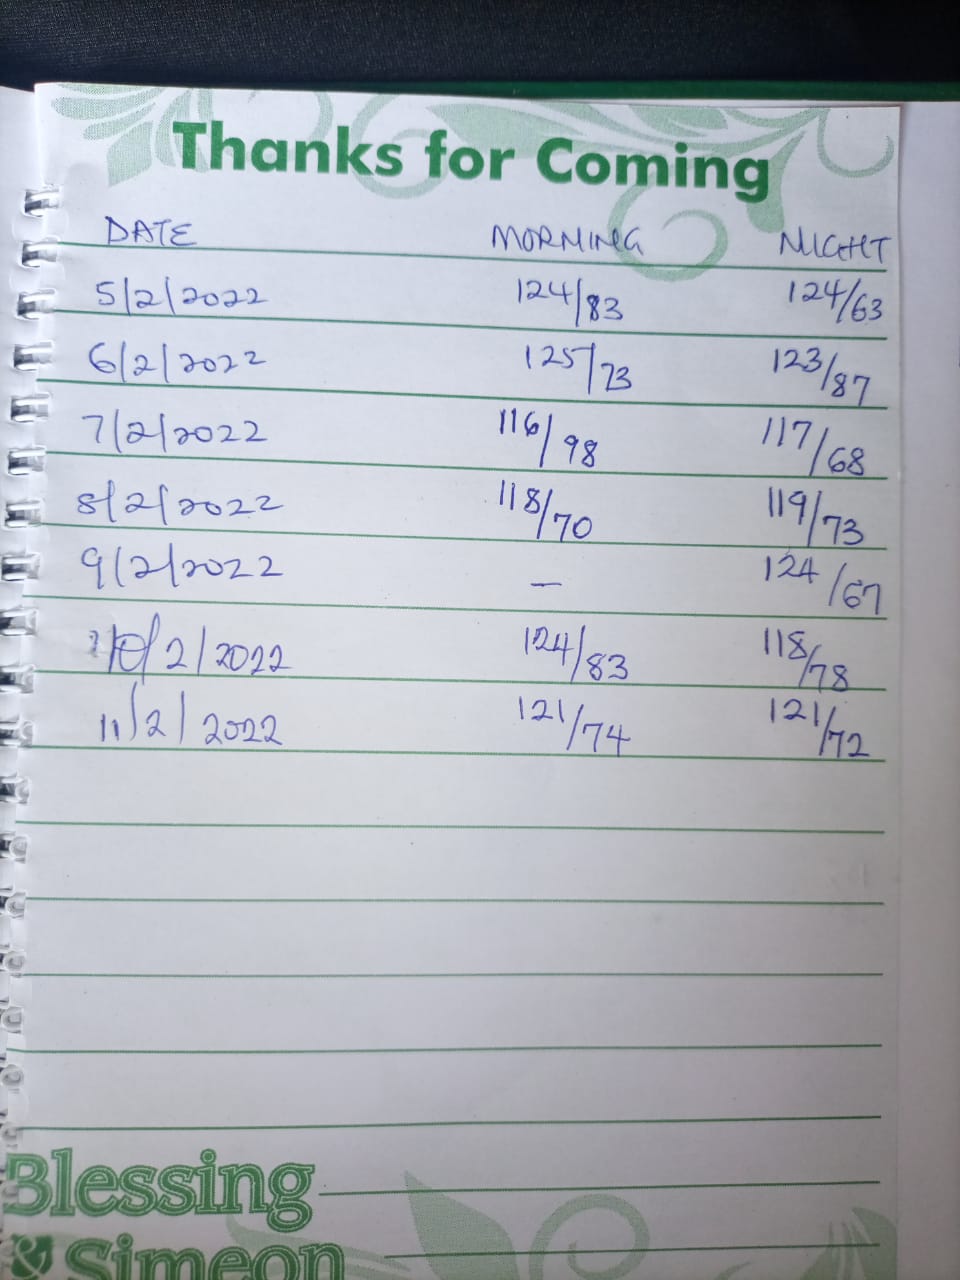 Thanks for Coming
DATE MORNING NIGHT
5/2/2022 124/83 124/63
6/2/2022 125/73 123/87
7/2/2022 116/98 117/68
8/2/2022 118/70 119/73
9/2/2022 — 124/67
10/2/2022 124/83 118/78
11/2/2022 121/74 121/72
Blessing
& Simeon